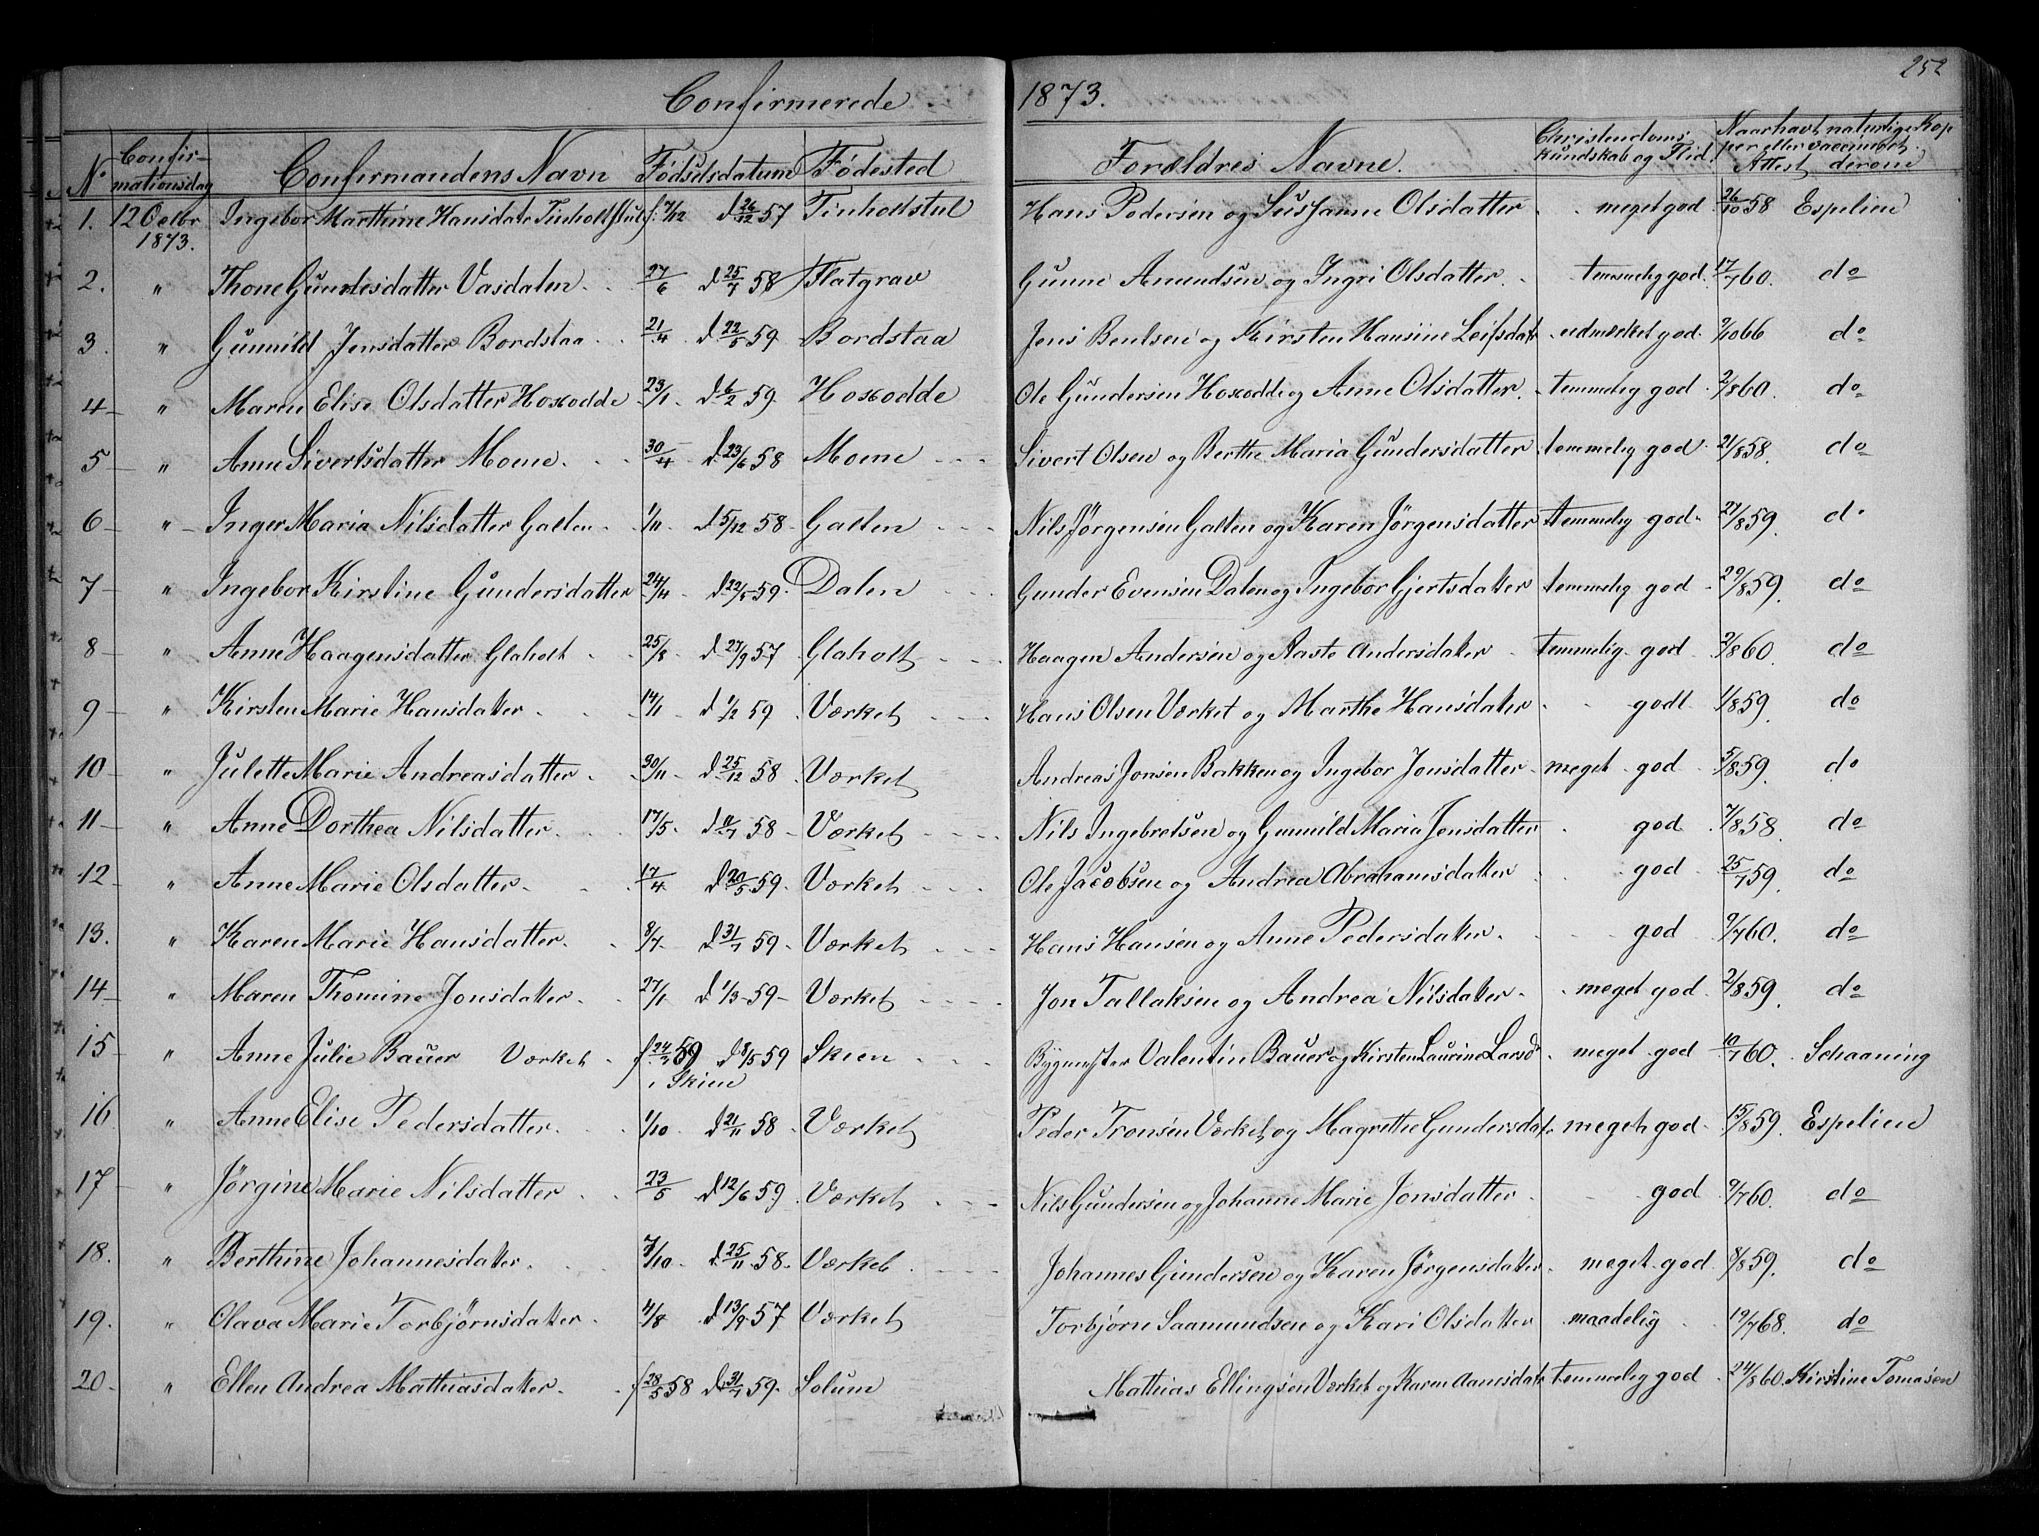 252
Confirmerede 1873.
No Confirmationsdag Confirmandens Navn Fødselsdatum Fødested Forældres Navne. Christendomskundskab og Flid. Naar havt naturlige Kopper eller vaccineret Attest derom
1. 12 Octbr Ingebor Marthine Hansdatr Tinholtstul f: 7/12 d 26/12 57 Tinholtstul Hans Pedersen og Susanne Olsdatter meget god 26/10 58 Espelien
1873.
2. " Thone Gundersdatter Vasdalen 27/6 d 25/7 58 Flatgrav Gunne Amundsen og Ingri Olsdatter. temmelig god 17/7 60. do
3. " Gunnild Jensdatter Bordstaa 21/4 d 22/5 59 Bordstaa Jens Bentsen og Kirsten Hansine Leifsdatr udmærket god 9/10 66 do
4 " Maren Elise Olsdatter Hoxodde 23/1 d 6/2 59. Hoxodde Ole Gundersen Hoxodde og Anne Olsdatter. temmelig god 2/8 60. do
5 " Anne Sivertsdatter Moene. 30/4 d. 23/6 58 Moene Sivert Olsen og Berthe Maria Gundersdatter temmelig god 21/8 58. do
6 " Inger Maria Nilsdatter Galten 1/11 d 5/12 58 Galten Nils Jørgensen Galten og Karen Jørgensdatter temmelig god 27/8 59. do
7 " Ingebor Kirstine Gundersdatter 24/4 d. 22/5 59. Dalen Gunder Evensen Dalen og Ingebor Gjertsdatter temmelig god 29/8 59. do
8 " Anne Haagensdatter Glaholt 25/8 d 27/9 57 Glaholt Haagen Andersen og Aaste Andersdatter temmelig god 2/8 60. do
9 " Kirsten Marie Hansdatter 14/1 d 1/2 59 Værket Hans Olsen Værket og Marthe Hansdatter godt 1/8 59. do
10 " Julette Marie Andreasdatter 30/11 d 25/12 58 Værket Andreas Jonsen Bakken og Ingebor Jonsdatter meget god 5/8 59. do
11 " Anne Dorthea Nilsdatter. 17/5 d 11/7 58 Værket Nils Ingebretsen og Gunnild Maria Jensdatter god 7/8 58. do
12 " Anne Marie Olsdatter. 17/4 d 20/5 59. Værket Ole Jacobsen og Andrea Abrahamsdatter god 25/7 59. do
13. " Karen Marie Hansdatter. 8/7 d 31/7 59 Værket Hans Hansen og Anne Pedersdatter. god 9/7 60. do
14 " Maren Thomine Jonsdatter. 27/1 d 1/3 59 Værket Jon Tallaksen og Andrea Nilsdatter. meget god 2/8 59. do
15 " Anne Julie Bauer Værket f 24/2 59 d 8/5 59 Skien Bygmester Valentin Bauer og Kirsten Laurine Larsd. meget god 10/7 60. Schaaning
i Skien
16 " Anne Elise Pedersdatter. 1/10 d 21/11 58 Værket Peder Tronsen Værket og Magrethe Gundersdatr meget god 15/8 59. Espelien
17 " Jørgine Marie Nilsdatter 23/5 d 12/6 59 Værket Nils Gundersen og Johanne Marie Jonsdatter god 9/7 60. do
18. " Berthine Johannesdatter. 7/10 d 25/11 58. Værket. Johannes Gundersen og Karen Jørgensdatter meget god 8/8 59. do
19. " Olava Marie Torbjørnsdatter 4/8 d 13/9 57 Værket Torbjørn Saamundsen og Kari Olsdatter maadelig 19/7 68. do
20 " Ellen Andrea Mathiasdatter. f 28/5 58 d 31/7 59. Solum Mathias Ellingsen Værket og Karen Aanesdatr temmelig god 24/8 60. Kirstine Tomasen